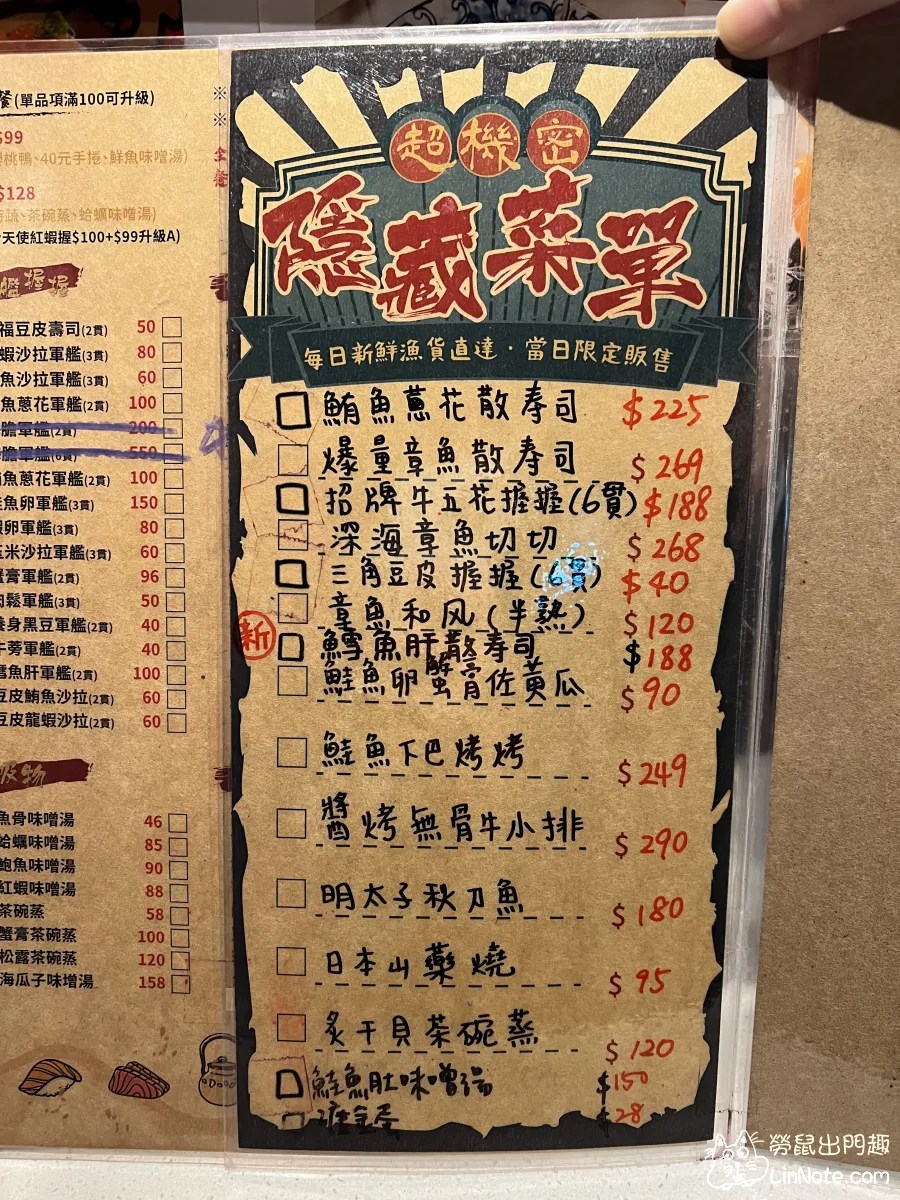 餐(單品項滿100可升級)
$99
櫻桃鴨、40元手捲、鮮魚味噌湯)
$128
時蔬、茶碗蒸、蛤蠣味噌湯)
天使紅蝦握$100+$99升級A)
艦握握
福豆皮壽司(2貫) 50
蝦沙拉軍艦(3貫) 80
魚沙拉軍艦(3貫) 60
魚蔥花軍艦(2貫) 100
膽軍艦(2貫) 200
膽軍艦(6貫) 550
鮪魚蔥花軍艦(2貫) 100
鮭魚卵軍艦(3貫) 150
蝦卵軍艦(3貫) 80
玉米沙拉軍艦(3貫) 60
蟹膏軍艦(2貫) 96
肉鬆軍艦(3貫) 50
養身黑豆軍艦(2貫) 40
牛蒡軍艦(2貫) 40
鱈魚肝軍艦(2貫) 100
豆皮鮪魚沙拉(2貫) 60
豆皮龍蝦沙拉(2貫) 60
吸物
魚骨味噌湯 46
蛤蠣味噌湯 85
鮑魚味噌湯 90
紅蝦味噌湯 88
茶碗蒸 58
蟹膏茶碗蒸 100
松露茶碗蒸 120
海瓜子味增湯 158
超機密
隱藏菜單
每日新鮮漁貨直達・當日限定販售
鮪魚蔥花散寿司 $225
爆量章魚散寿司 $269
招牌牛五花握握(6貫) $188
深海章魚切切 $268
三角豆皮握握(6貫) $40
章魚和风(半熟) $120
新 鱈魚肝散寿司 $188
鮭魚卵蟹膏佐黃瓜 $90
鮭魚下巴烤烤 $249
醬烤無骨牛小排 $290
明太子秋刀魚 $180
日本山藥燒 $95
炙干貝茶碗蒸 $120
鮭魚肚味噌湯 $150
$28
勞鼠出門趣
LinNote.com